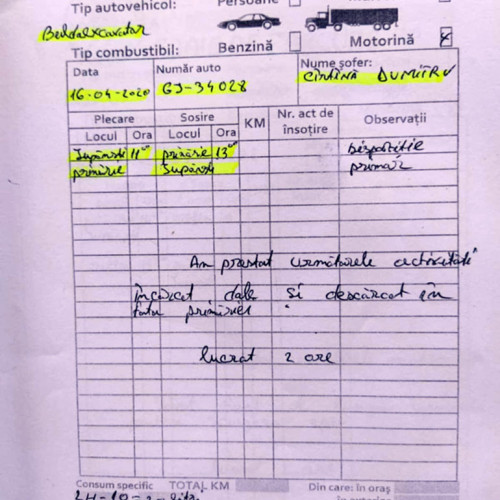 Tip autovehicol:
Persoane
Buldoexcavator
Tip combustibil: Benzină Motorină
Data
16-04-2020
Număr auto
GJ-34028
Nume șofer:
DUMITRU
Plecare Sosire KM Nr. act de însoțire Observații
Locul Ora Locul Ora
11 primărie 13 Dispoziție
primărie primar
Am prestat următoarele activități
încărcat dale și descărcat în
fața primăriei
lucrat 2 ore
Consum specific TOTAL KM Din care: în oraș